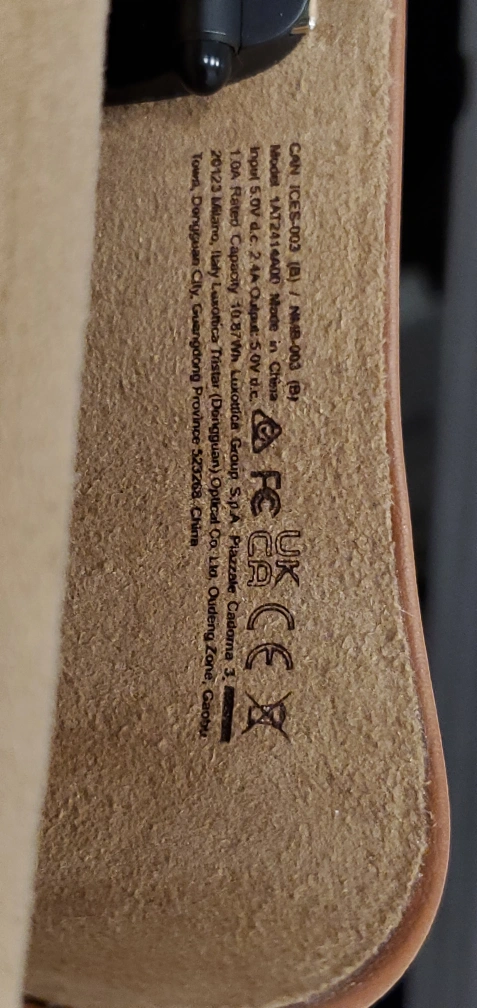 CAN ICES-003 (B) / NMB-003 (B)
Model 1AT2414A00 Made in China
Input 5.0V d.c. 2.4A Output: 5.0V d.c.
1.0A Rated Capacity 10.87Wh Luxottica Group S.p.A Piazzale Cadorna 3,
20123 Milano, Italy Luxottica Tristar (Dongguan) Optical Co. Ltd, Oudeng Zone, Gaobu
Town, Dongguan City, Guangdong Province 523268 China
FC
UK
CA
CE